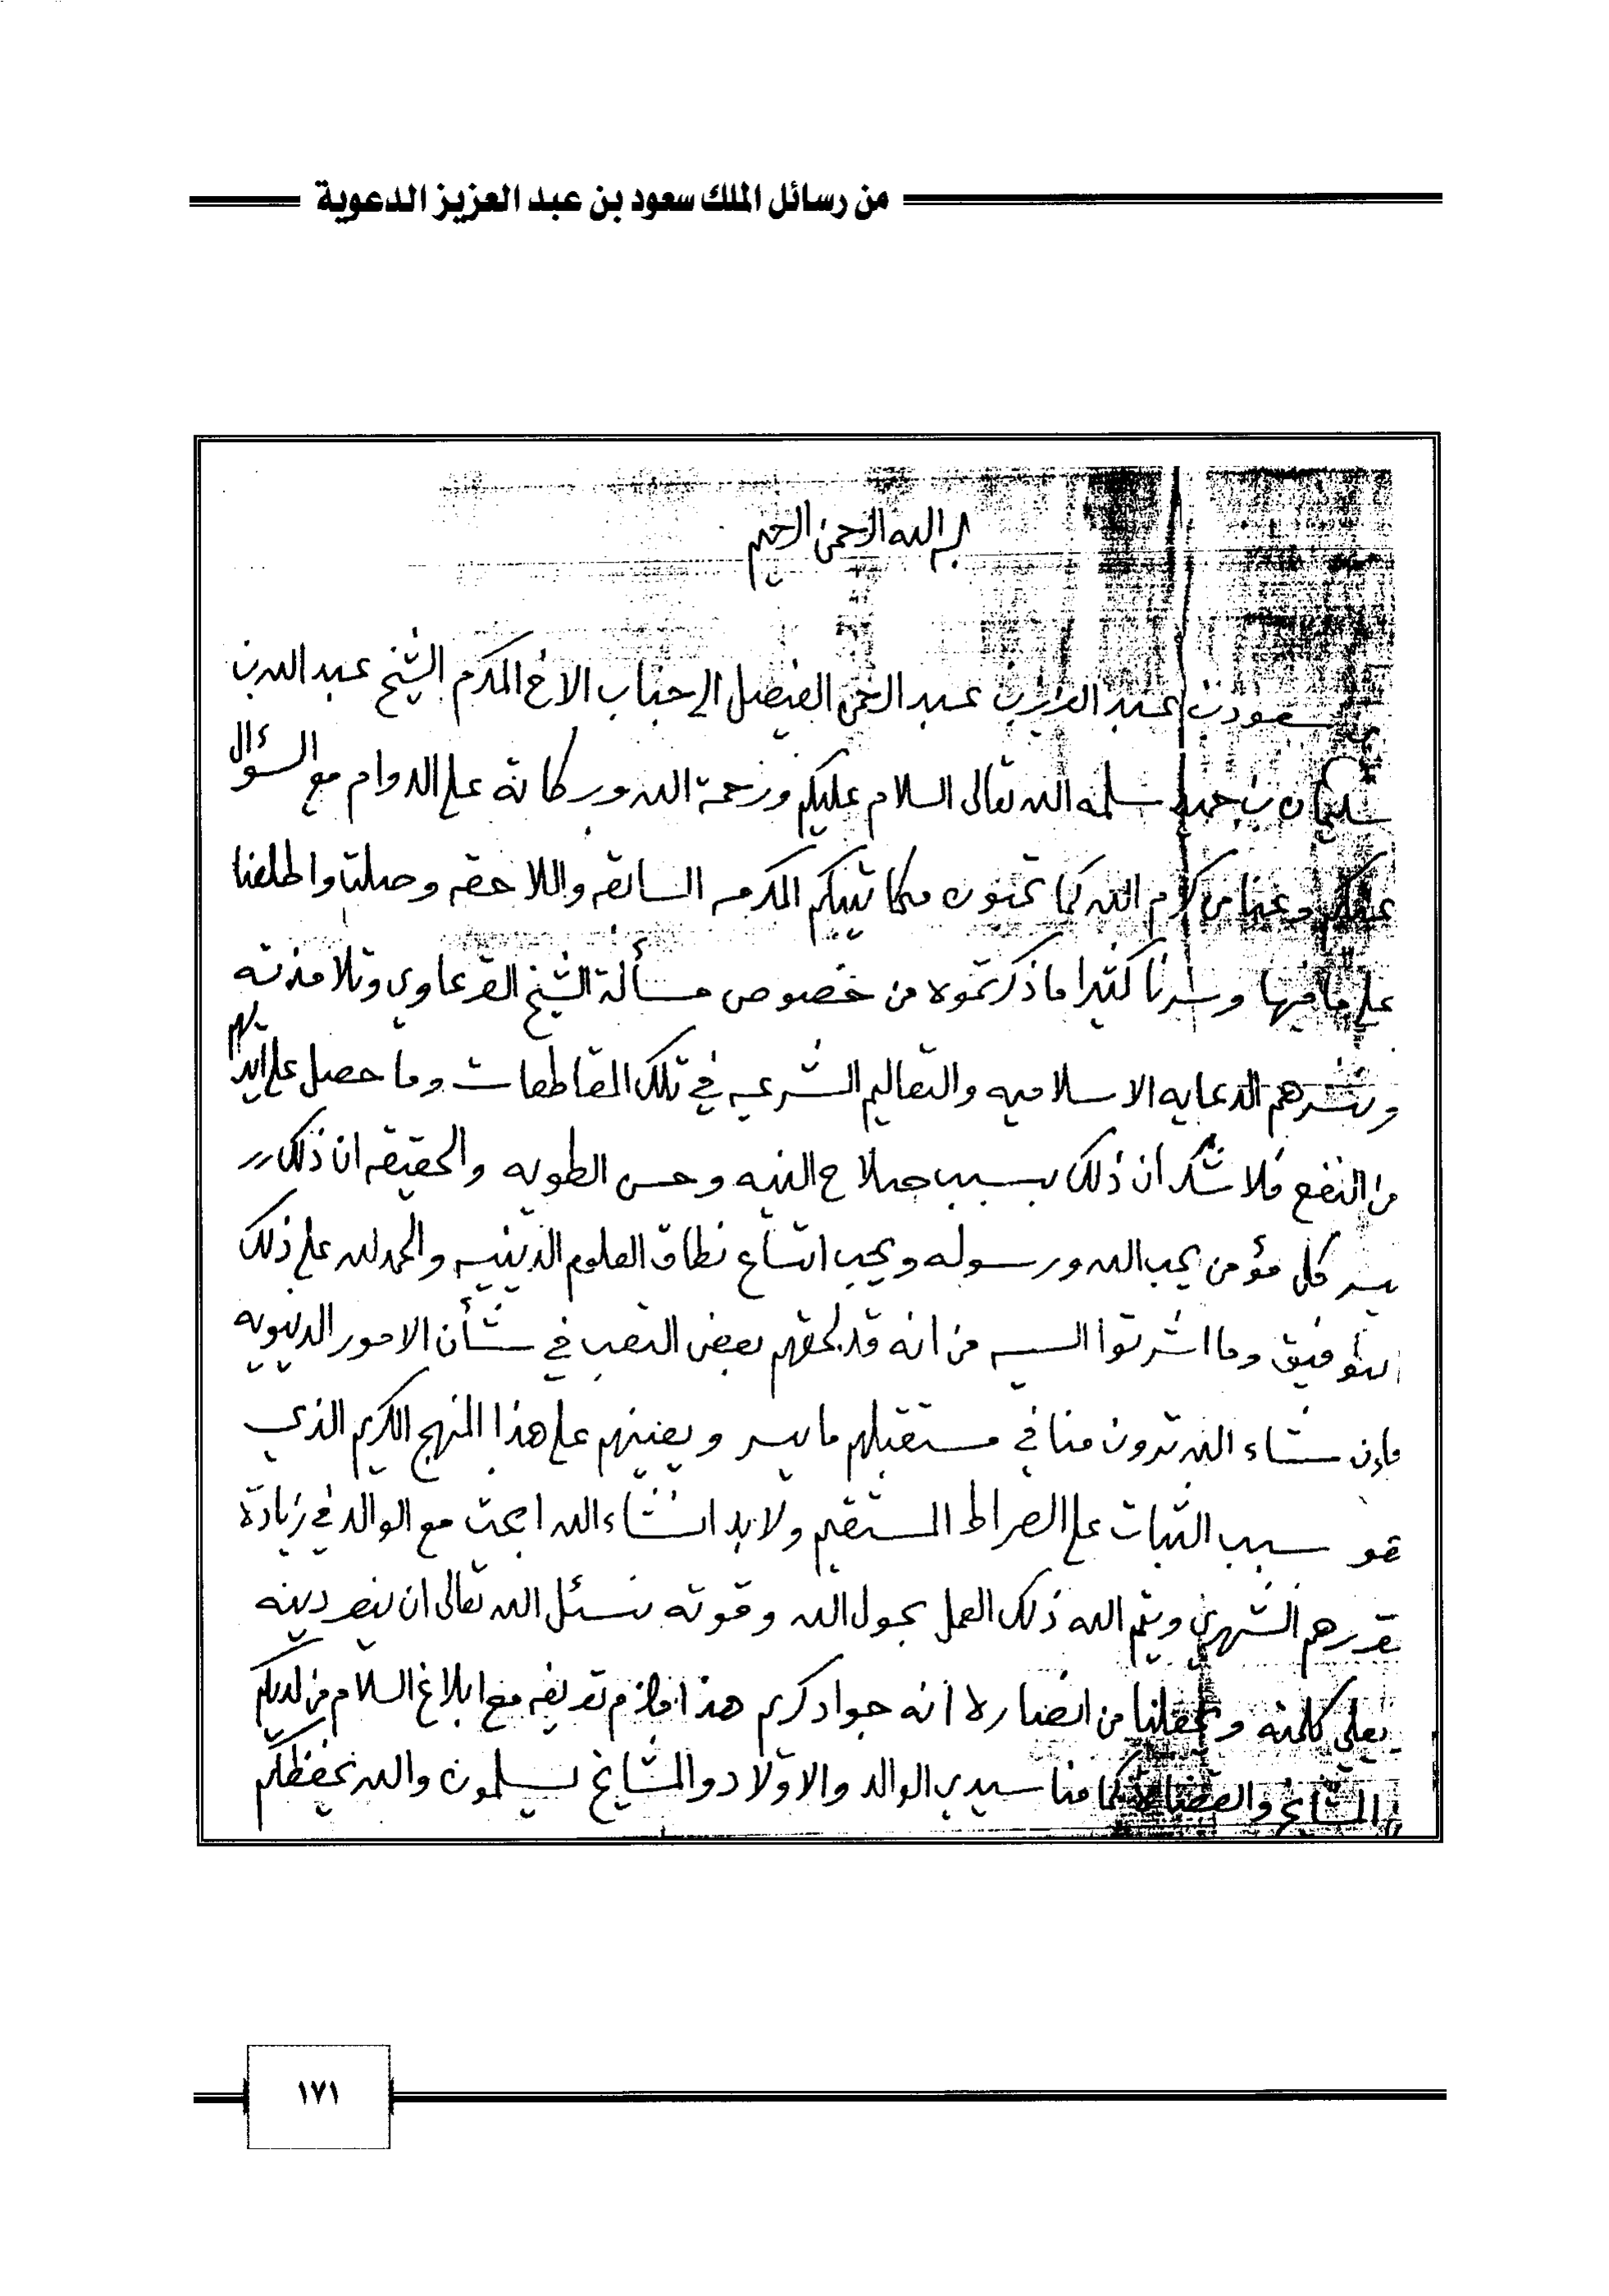 من رسائل الملك سعود بن عبد العزيز الدعوية
بسم الله الرحمن الرحيم
من سعود بن عبد العزيز بن عبد الرحمن الفيصل الى جناب الاخ المكرم الشيخ عبد الله بن
سليمان بن حميد سلمه الله تعالى السلام عليكم ورحمة الله وبركاته على الدوام مع السؤال
عنكم وعنا من كرم الله كما تحبون مكاتيبكم المكرمه السابقه واللاحقه وصلت واطلعنا
على ما فيها وسرنا كثيرا ما ذكرتموه من خصوص مسألة الشيخ القرعاوي وتلامذته
ونشرهم الدعايه الاسلاميه والتعاليم الشرعيه في تلك المقاطعات وما حصل على ايديهم
من النفع فلا شك أن ذلك بسبب صلاح النيه وحسن الطويه والحقيقه ان ذلك
يسر كل مؤمن يحب الله ورسوله ويحب اتساع نطاق العلوم الدينيه والحمد لله على ذلك
التوفيق وما اشرتوا اليه من انه قد لحقهم بعض التعب في شأن الامور الدنيويه
فإن شاء الله ترون منا في مستقبلهم ما يسر ويعينهم على هذا المنهج الكريم الذي
هو سبب الثبات على الصراط المستقيم ولا بد انشاء الله ابحث مع الوالد في زيادة
مقررهم الشهري ويتم الله ذلك العمل بحول الله وقوته نسئل الله تعالى ان ينصر دينه
ويعلي كلمته ويجعلنا من انصاره انه جواد كريم هذا ما لزم تعريفه مع ابلاغ السلام من لديكم
المشايخ والقضاة كما منا سيدي الوالد والاولاد والمشايخ يسلمون والله يحفظكم
١٧١